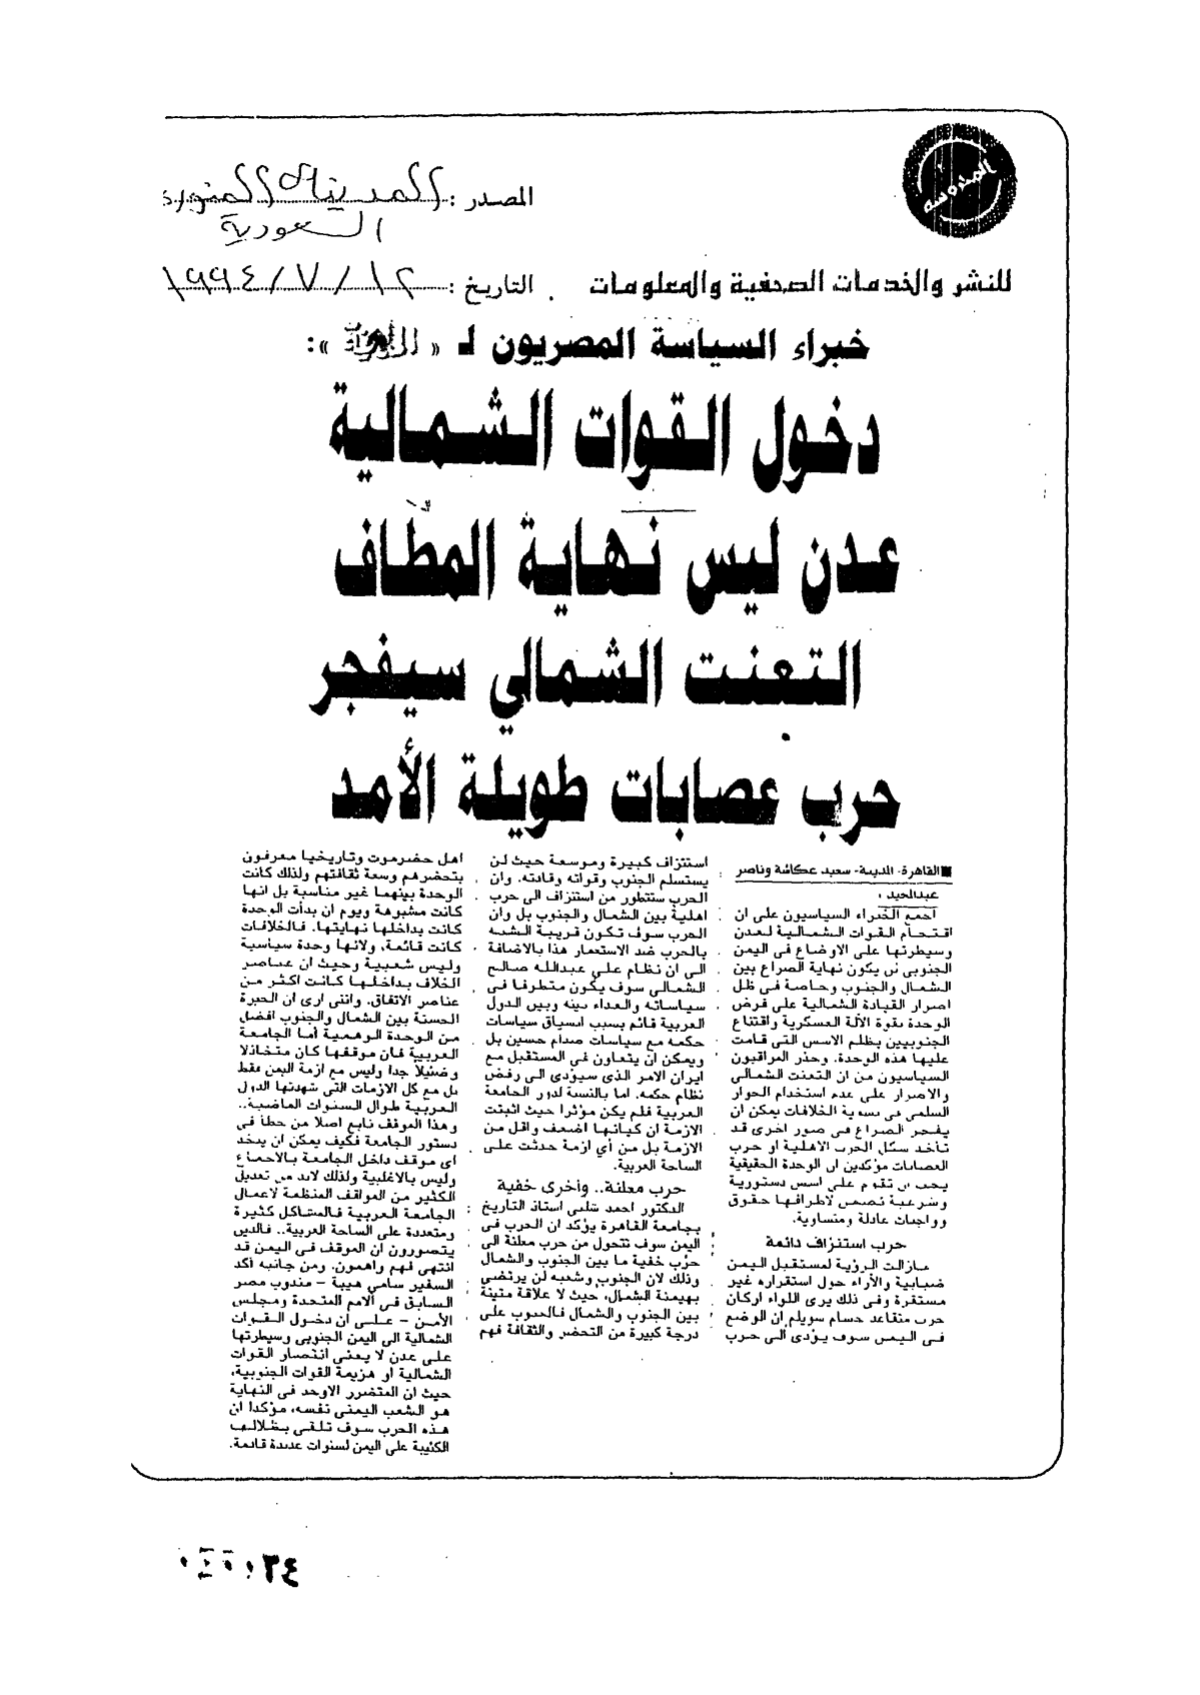 المحروسة
المصدر : المدينة المنورة
السعودية
للنشر والخدمات الصحفية والمعلومات . التاريخ : ١٢ / ٧ / ١٩٩٤
خبراء السياسة المصريون لـ « المدينة » :
دخول القوات الشمالية
عدن ليس نهاية المطاف
التعنت الشمالي سيفجر
حرب عصابات طويلة الأمد
■القاهرة- المدينة- سعيد عكاشة وناصر
عبدالحميد ،
اجمع الخبراء السياسيون على ان
اقتحام القوات الشمالية لعدن
وسيطرتها على الاوضاع في اليمن
الجنوبي لن يكون نهاية الصراع بين
الشمال والجنوب وخاصة في ظل
اصرار القيادة الشمالية على فرض
الوحدة بقوة الآلة العسكرية واقتناع
الجنوبيين بظلم الاسس التي قامت
عليها هذه الوحدة. وحذر المراقبون
السياسيون من ان التعنت الشمالي
والاصرار على عدم استخدام الحوار
السلمي في تسوية الخلافات يمكن ان
يفجر الصراع في صور اخرى قد
تأخذ شكل الحرب الاهلية او حرب
العصابات مؤكدين ان الوحدة الحقيقية
يجب ان تقوم على اسس دستورية
وشرعية تضمن لاطرافها حقوق
وواجبات عادلة ومتساوية.
حرب استنزاف دائمة
مازالت الرؤية لمستقبل اليمن
ضبابية والآراء حول استقراره غير
مستقرة وفي ذلك يرى اللواء اركان
حرب متقاعد حسام سويلم ان الوضع
في اليمن سوف يؤدي الى حرب
استنزاف كبيرة وموسعة حيث لن
يستسلم الجنوب وقواته وقادته. وان
الحرب ستتطور من استنزاف الى حرب
اهلية بين الشمال والجنوب بل وان
الحرب سوف تكون قريبة الشبه
بالحرب ضد الاستعمار هذا بالاضافة
الى ان نظام علي عبدالله صالح
الشمالي سوف يكون متطرفا في
سياساته والعداء بينه وبين الدول
العربية قائم بسبب انسياق سياسات
حكمه مع سياسات صدام حسين بل
ويمكن ان يتعاون في المستقبل مع
ايران الامر الذي سيؤدي الى رفض
نظام حكمه. اما بالنسبة لدور الجامعة
العربية فلم يكن مؤثرا حيث اثبتت
الازمة ان كيانها اضعف واقل من
الازمة بل من أي ازمة حدثت على
الساحة العربية.
حرب معلنة.. وأخرى خفية
الدكتور احمد شلبي استاذ التاريخ
بجامعة القاهرة يؤكد ان الحرب في
اليمن سوف تتحول من حرب معلنة الى
حرب خفية ما بين الجنوب والشمال
وذلك لان الجنوب وشعبه لن يرتضي
بهيمنة الشمال، حيث لا علاقة متينة
بين الجنوب والشمال فالجنوب على
درجة كبيرة من التحضر والثقافة فهم
اهل حضرموت وتاريخيا معرفون
بتحضرهم وسعة ثقافتهم ولذلك كانت
الوحدة بينهما غير مناسبة بل انها
كانت مشبوهة ويوم ان بدأت الوحدة
كانت بداخلها نهايتها. فالخلافات
كانت قائمة، ولانها وحدة سياسية
وليس شعبية وحيث ان عناصر
الخلاف بداخلها كانت اكثر من
عناصر الاتفاق. وانني ارى ان الجيرة
الحسنة بين الشمال والجنوب افضل
من الوحدة الوهمية أما الجامعة
العربية فان موقفها كان متخاذلا
وضئيلا جدا وليس مع ازمة اليمن فقط
بل مع كل الازمات التي شهدتها الدول
العربية طوال السنوات الماضية..
وهذا الموقف نابع اصلا من خطأ في
دستور الجامعة فكيف يمكن ان يتخذ
اي موقف داخل الجامعة بالاجماع
وليس بالاغلبية ولذلك لابد من تعديل
الكثير من المواقف المنظمة لاعمال
الجامعة العربية فالمشاكل كثيرة
ومتعددة على الساحة العربية.. فالذين
يتصورون ان الموقف في اليمن قد
انتهى فهم واهمون. ومن جانبه اكد
السفير سامي هيبة – مندوب مصر
السابق في الأمم المتحدة ومجلس
الأمن – على ان دخول القوات
الشمالية الى اليمن الجنوبي وسيطرتها
على عدن لا يعني انتصار القوات
الشمالية او هزيمة القوات الجنوبية،
حيث ان المتضرر الاوحد في النهاية
هو الشعب اليمني نفسه، مؤكدا ان
هذه الحرب سوف تلقي بظلالها
الكئيبة على اليمن لسنوات عديدة قادمة.